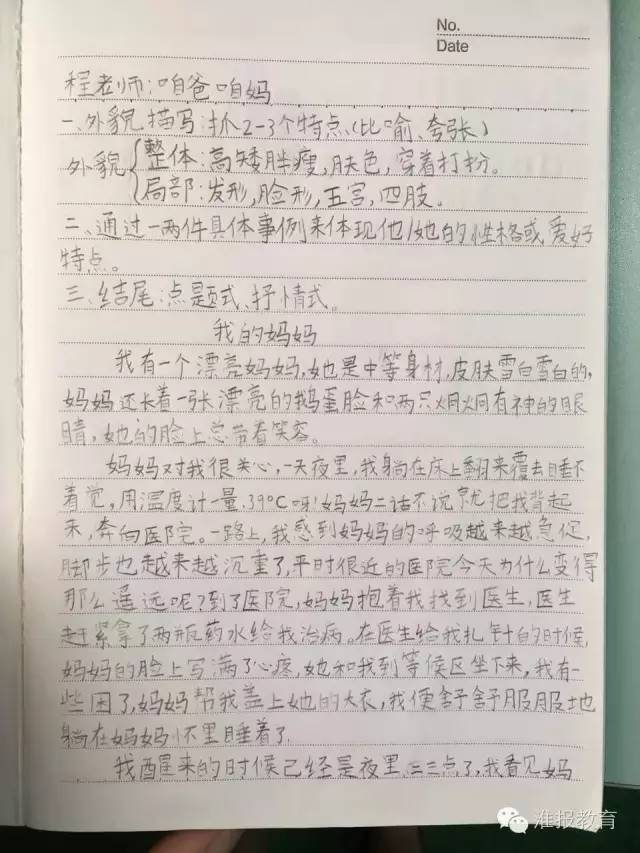 No.
Date
程老师:咱爸咱妈
一、外貌描写:抓2-3个特点、(比喻、夸张)
外貌{整体:高矮胖瘦,肤色,穿着打扮。
局部:发形,脸形,五官,四肢。
二、通过一两件具体事例来体现他/她的性格或爱好
特点。
三、结尾:点题式、抒情式。
我的妈妈
我有一个漂亮妈妈,她是中等身材,皮肤雪白雪白的,
妈妈还长着一张漂亮的鹅蛋脸和两只炯炯有神的眼
睛,她的脸上总带着笑容。
妈妈对我很关心,一天夜里,我躺在床上翻来覆去睡不
着觉,用温度计一量,39℃呀!妈妈二话不说就把我背起
来,奔向医院。一路上,我感到妈妈的呼吸越来越急促,
脚步也越来越沉重了,平时很近的医院今天为什么变得
那么遥远呢?到了医院,妈妈抱着我找到医生,医生
赶紧拿了两瓶药水给我治病。在医生给我扎针的时候,
妈妈的脸上写满了心疼,她和我到等候区坐下来,我有一
些困了,妈妈帮我盖上她的大衣,我便舒舒服服地
躺在妈妈怀里睡着了.
我醒来的时候已经是夜里二三点了,我看见妈
淮报教育